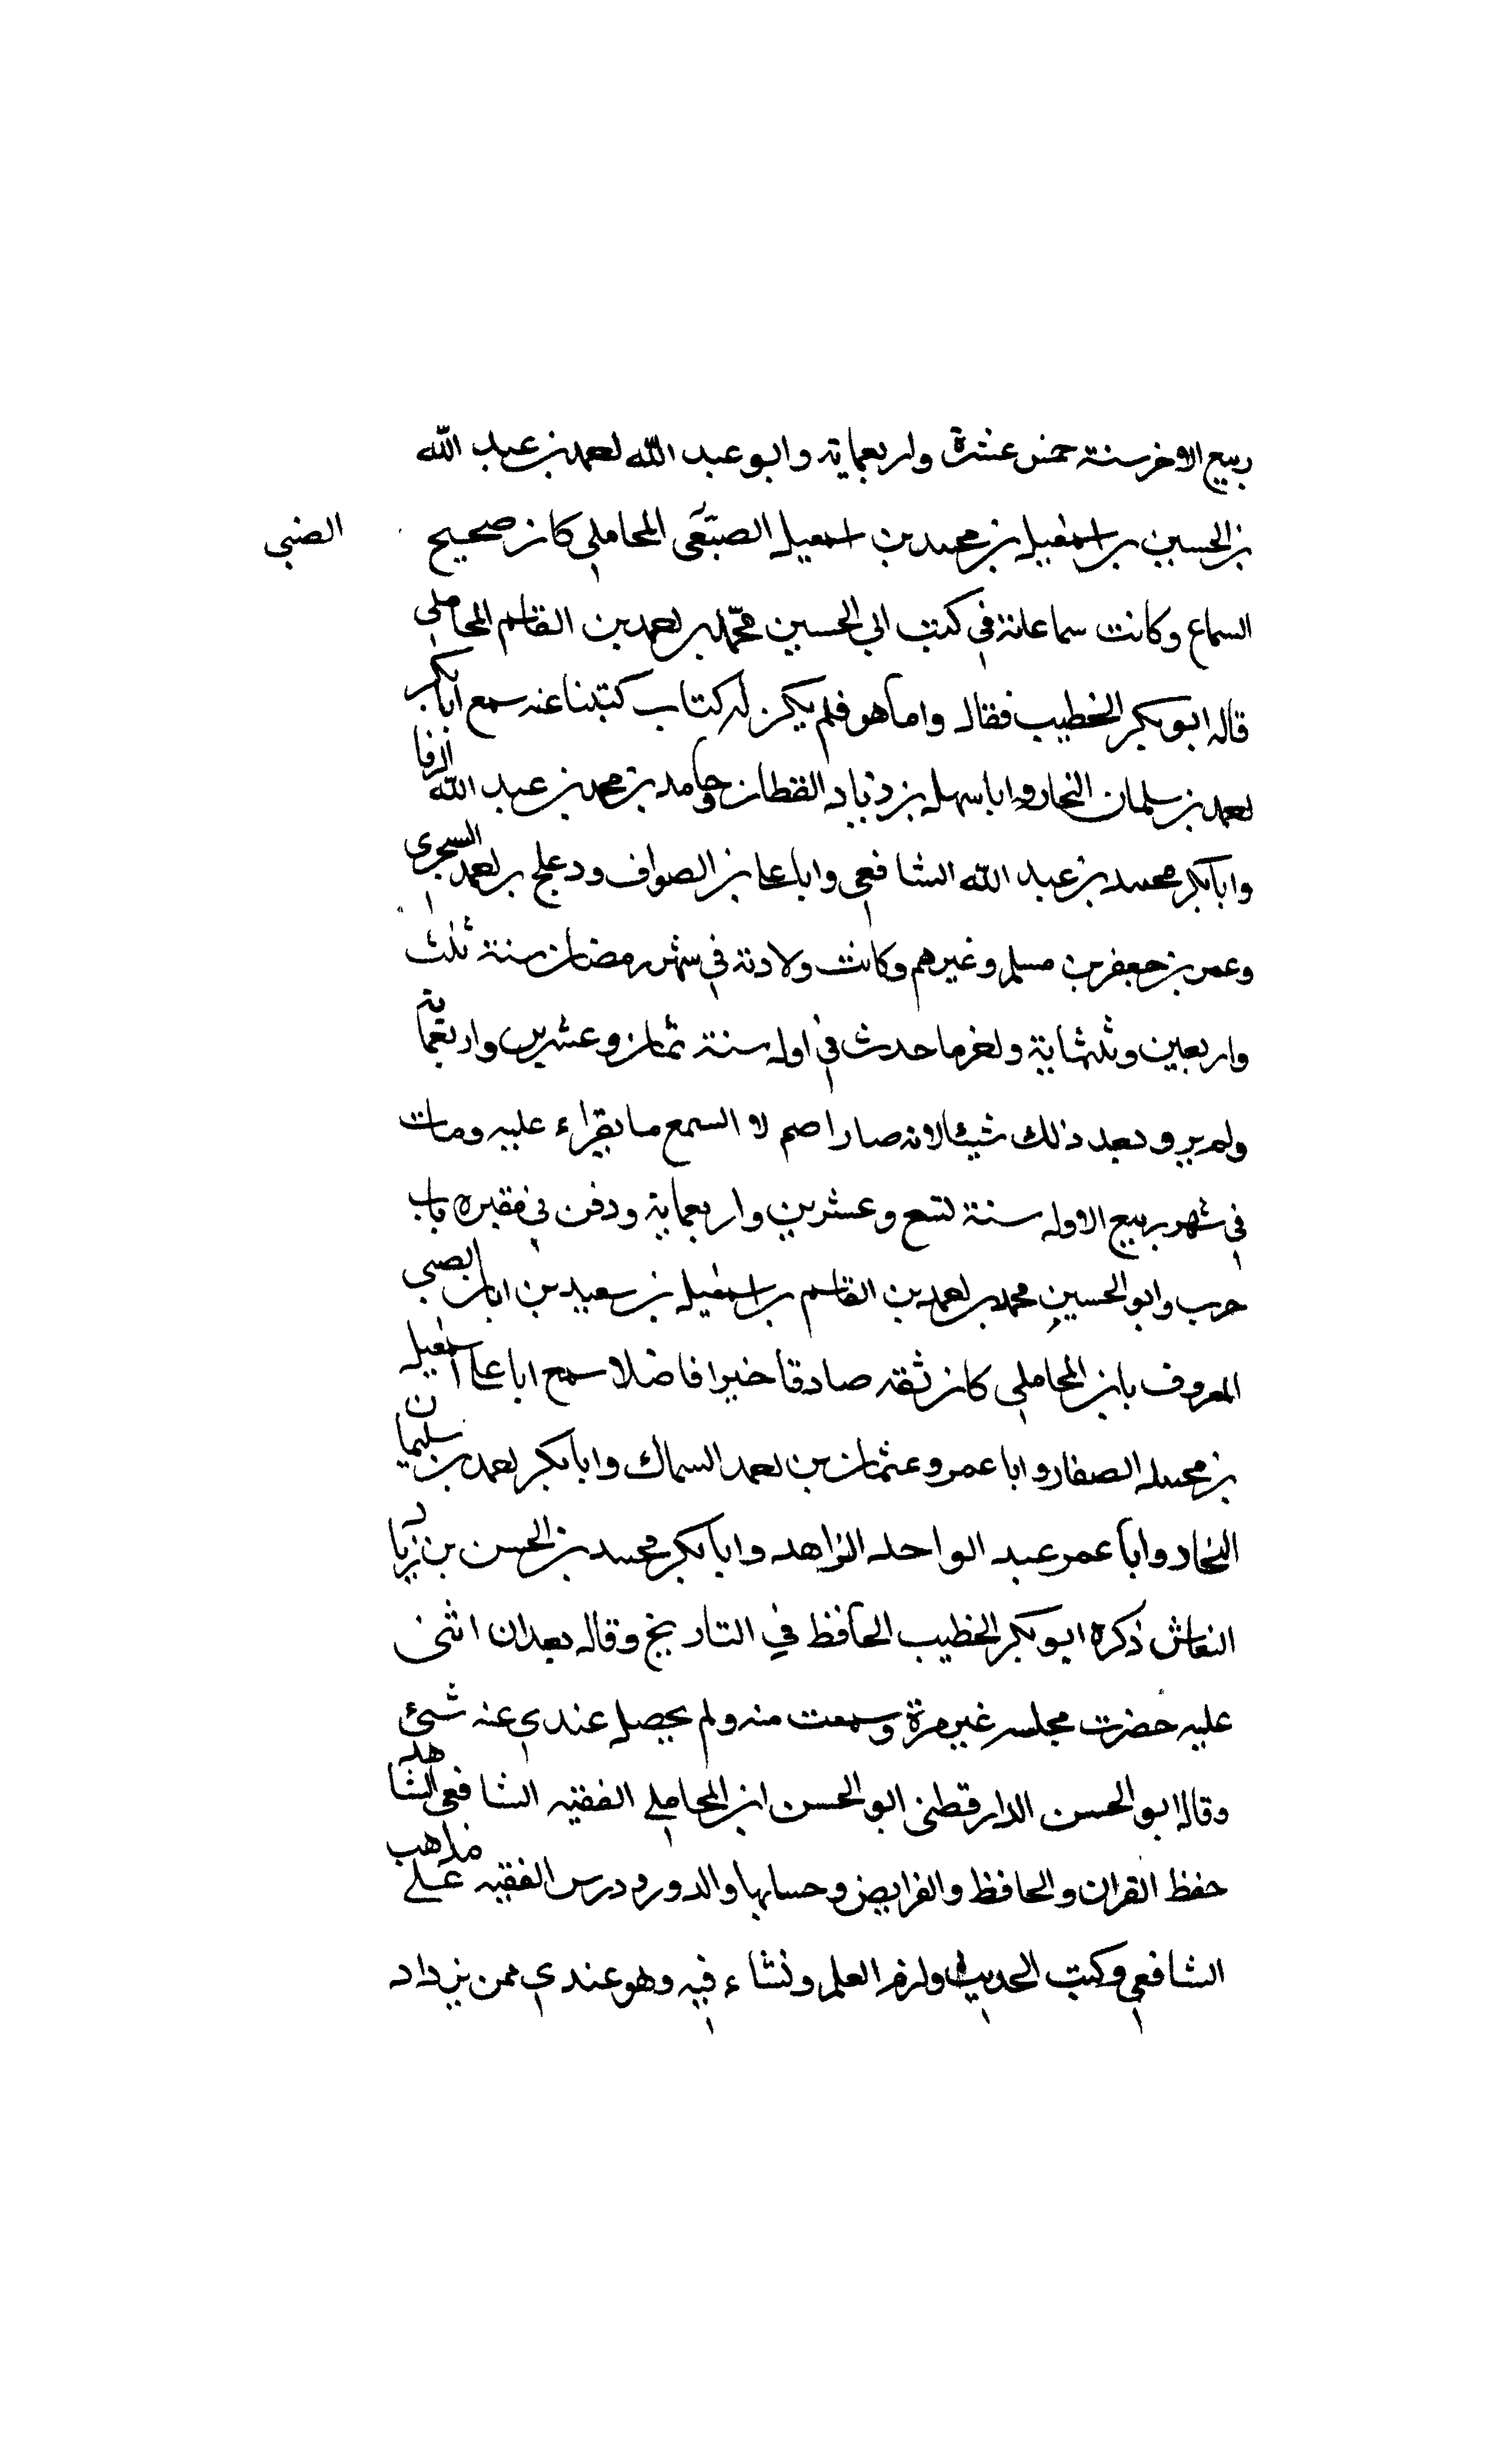 ربيع الاخر سنة خمس عشرة واربعماية وابو عبد الله احمد بن عبد الله
بن الحسين بن اسمعيل بن محمد بن اسمعيل المحاملي كان صحيح
الضبي
السماع وكانت سماعاته في كتب ابي الحسين محمد بن احمد بن القاسم المحاملي
قاله ابو بكر الخطيب فقال واما هو فلم يكن له كتاب كتبنا عنه سمع ابا بكر
احمد بن سلمان النجار وابا سهل بن زياد القطان وحامد بن محمد بن عبد الله الرفا
وابا بكر محمد بن عبد الله الشافعي وابا علي بن الصواف ودعلج بن احمد السجزي
وعمر بن جعفر بن مسلم وغيرهم وكانت ولادته في شهر رمضان سنة ثلث
واربعين وثلثماية واخر ما حدث في اول سنة ثمان وعشرين واربعماية
ولم يرو بعد ذلك شيئا لانه صار اصم لا السمع ما يقراء عليه ومات
في شهر ربيع الاول سنة تسع وعشرين واربعماية ودفن في مقبره باب
حرب وابو الحسين محمد بن احمد بن القاسم بن اسمعيل بن سعيد بن ابان الضبي
المعروف بابن المحاملي كان ثقه صادقا خيرا فاضلا سمع ابا علي اسمعيل
بن محمد الصفار وابا عمرو عثمان بن احمد السماك وابا بكر احمد بن سليمان
النجاد وابا عمر عبد الواحد الزاهد وابا بكر محمد بن الحسن بن زياد
النقاش ذكره ابو بكر الخطيب الحافظ في التاريخ وقال بعد ان اثنى
عليه حضرت مجلسه غير مرة وسمعت منه ولم يحصل عندي عنه شئ
وقال ابو الحسن الدارقطني ابو الحسن ابن المحاملي الفقيه الشافعي الشاهد
حفظ القران والحافظ والفرايض وحسابها والدور ودرس الفقيه على مذاهب
الشافعي وكتب الحديث ولزم العلم ونشاء فيه وهو عندي ممن يزداد